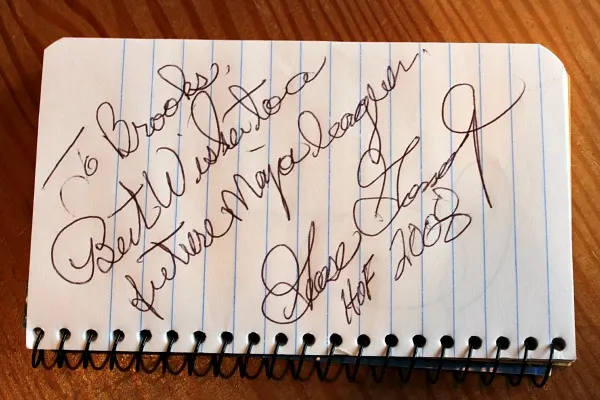 To Brooks,
Best Wishes to a
future Major leaguer.
Goose Gossage
HOF 2008